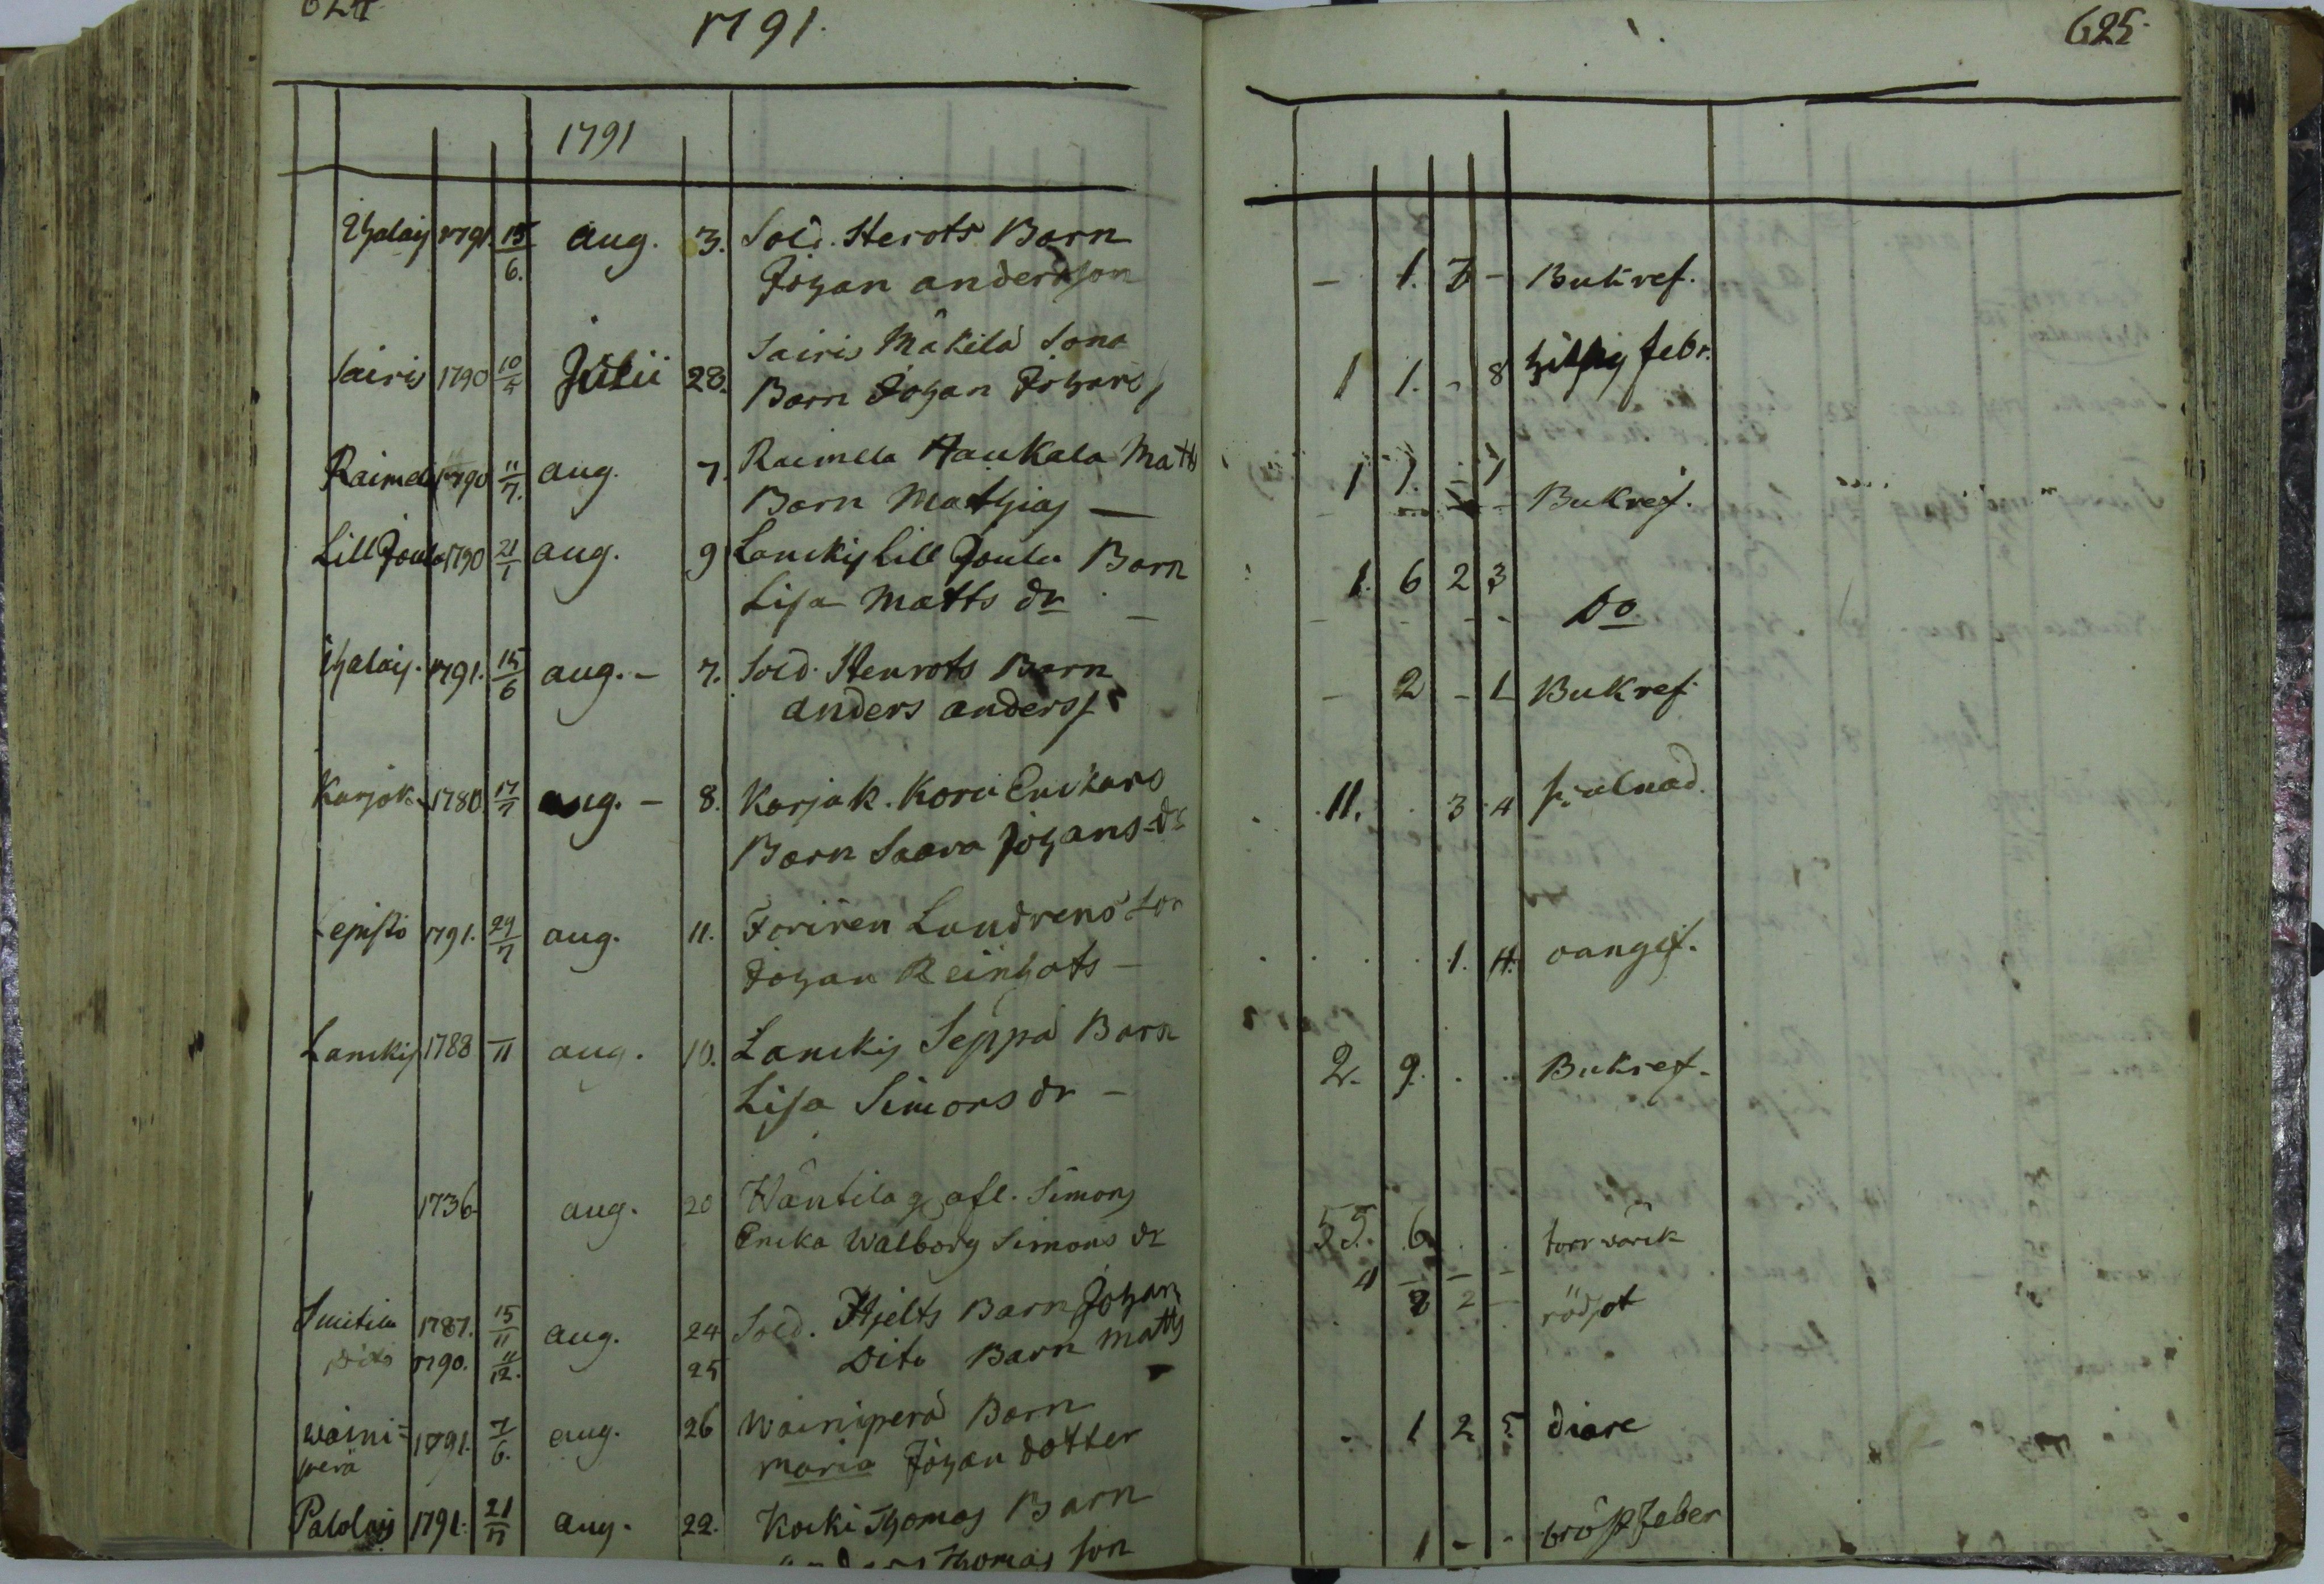 624
1791.
625.
1791
Ihalais 1791. 15/6. aug. 3. Sold. Stenrots Barn
Johan andersson - 1. 7 - Bukref.
Sairis 1790 10/5 Julii 28. Sairis Mäkilä Sons
Barn Johan Johans 1 1. - 8 febr.
Raimela 1790 11/7. aug. 7. Raimela Haukala Matts
Barn Mathias — 1 1. - 7 Bukref.
Lill Joula 1790 21/1 aug. 9 Lanskis Lill Joula Barn
Lisa Matts dr 1. 6 2 3 Do
Ihalais. 1791. 15/6 aug. - 7. Sold. Stenrots Barn
anders anderss - 2 - 1 Bukref
Karjak. 1780. 17/7 aug. - 8. Karjak. Barn Saara Johans dr .11. . 3 4
1791. 29/7 aug. 11. Lundrens Son
Johan Reinhots - . . 1. 14. oangif.
Lanskis 1788 -/11 aug. 10. Lanskis Seppä Barn
Lisa Simons dr - 2. 9. . . Bukref.
1736 aug. 20 Häntilä g afl. Simons
Enka Walborg Simons dr 55. 6. . . torrwärk
1787. 15/11 aug. 24 Sold. Hjelts Barn Johan
Dito 1790. 11/12. 25 Dito Barn Matts rödsot
waini= 1791. 7/6. aug. 26 Wainiperä Barn
perä maria Johan dotter . 1 2 5 diare
Palolais 1791. 21/7 aug. 22. Koski Thomas Barn
anders Thomas son 1 - - bröstfeber